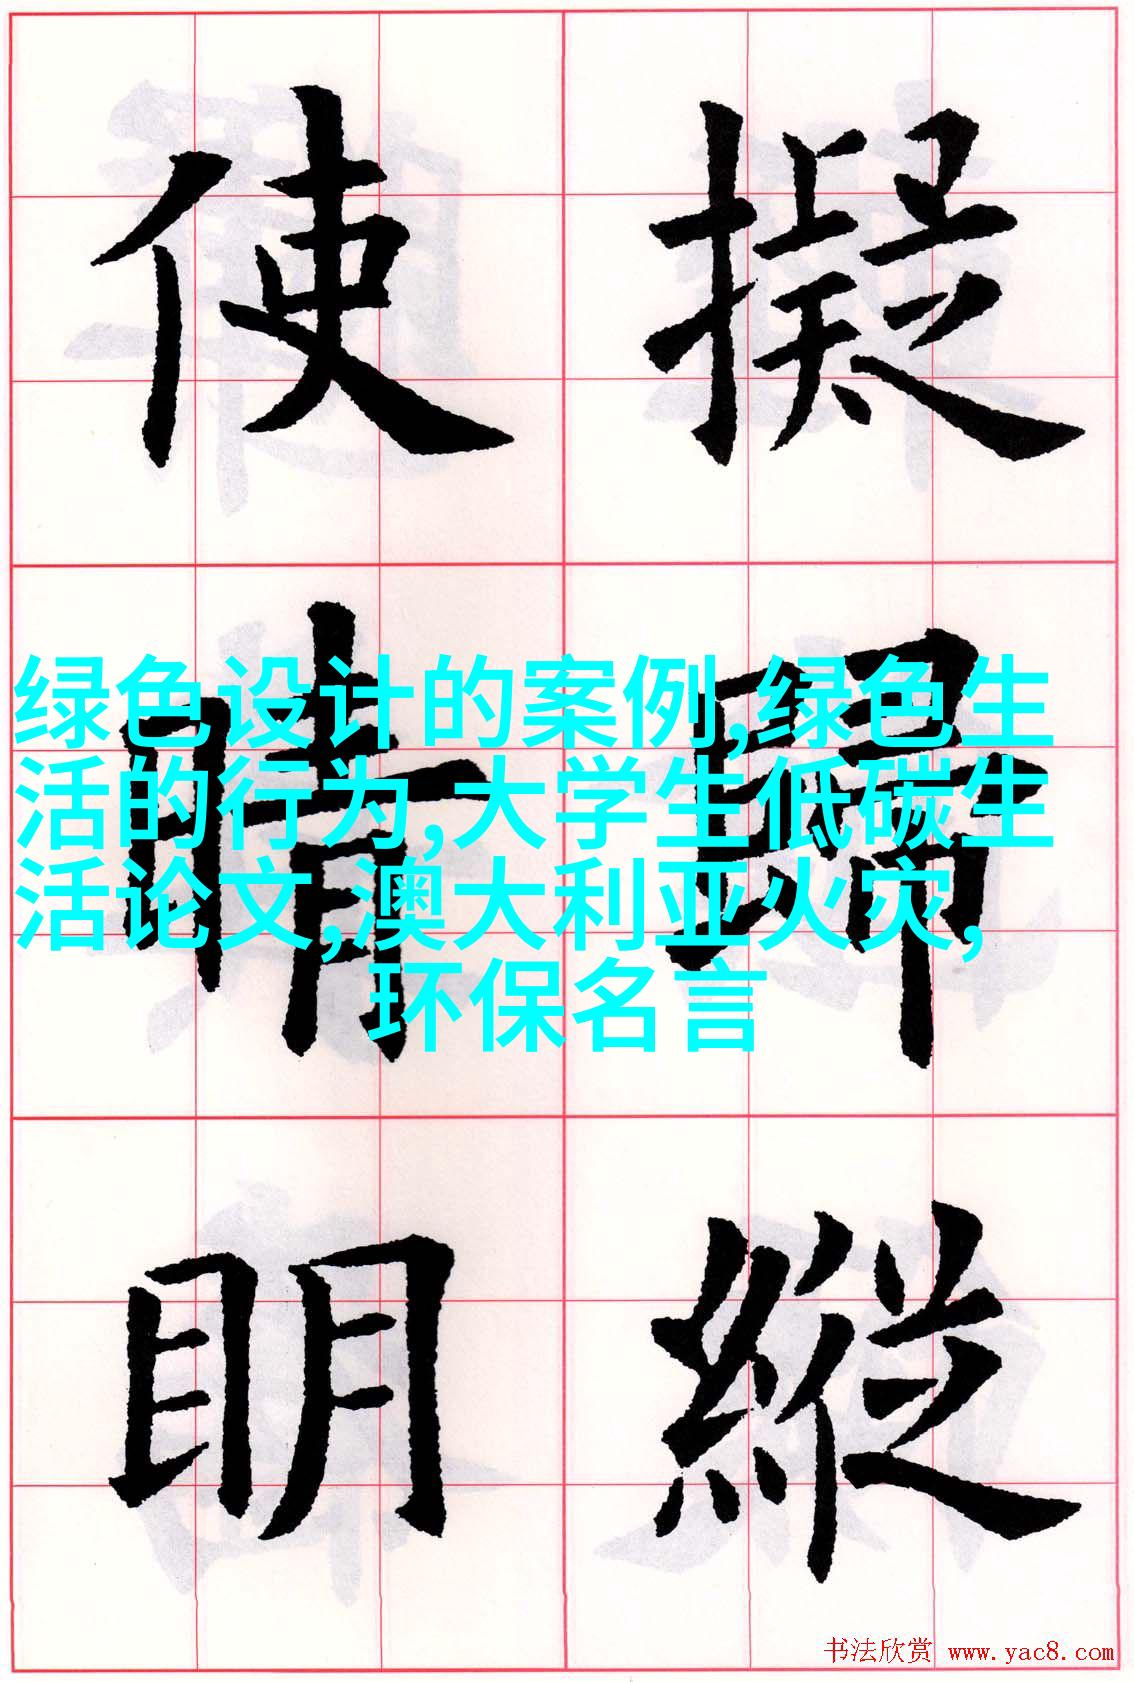 使 擬
睛 歸
明 縱
绿色设计的案例,绿色生
活的行为,大学生低碳生
活论文,澳大利亚火灾,
环保名言
书法欣赏 www.yac8.com